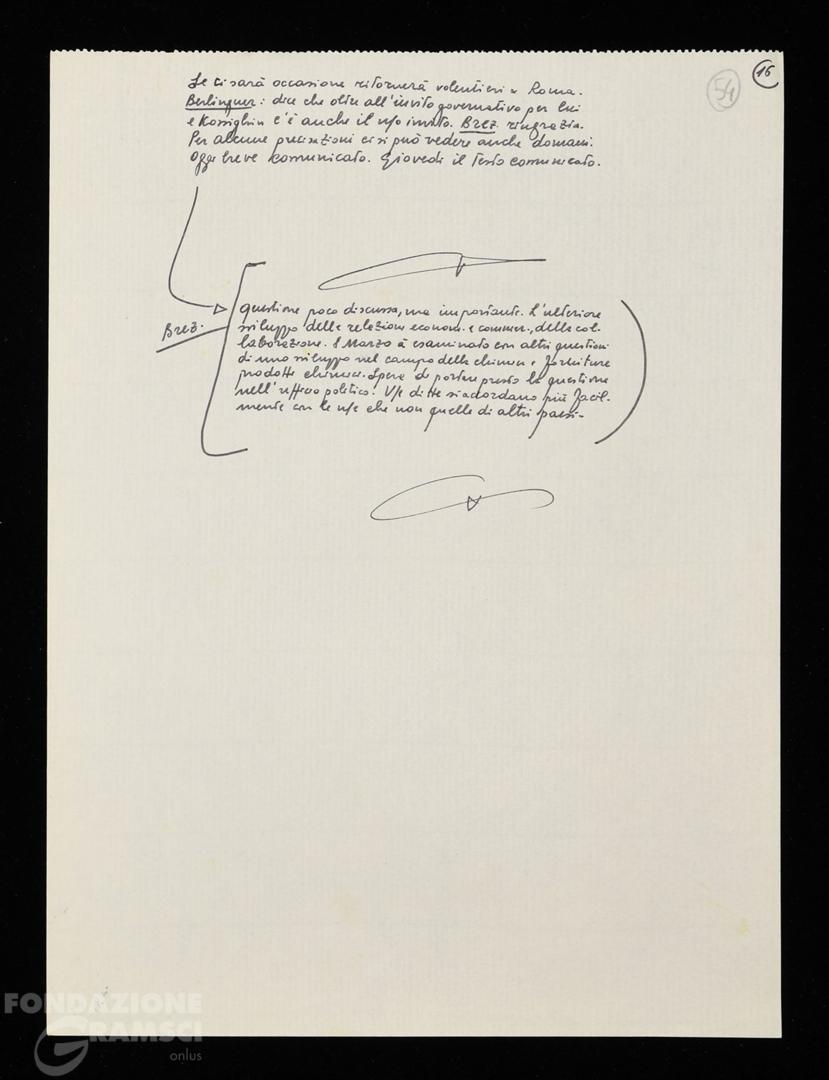 16
54
Se ci sarà occasione ritornerà volentieri a Roma.
Berlinguer: dice che oltre all'invito governativo per lui
e Kossighin c'è anche il n/o invito. Brez. ringrazia.
Per alcune precisazioni ci si può vedere anche domani.
Oggi breve komunicato. Giovedì il testo comunicato.
Brez.
Questione poco discussa, ma importante. L'ulteriore
sviluppo delle relazioni econom. e commer., della col-
laborazione. 8 Marzo à esaminato con altri questioni
di uno sviluppo nel campo della chimica e forniture
prodotti chimici. Spera di portare presto la questione
nell'ufficio politico. V/e ditte si accordano più facil-
mente con le n/e che non quelle di altri paesi-
FONDAZIONE
GRAMSCI
onlus